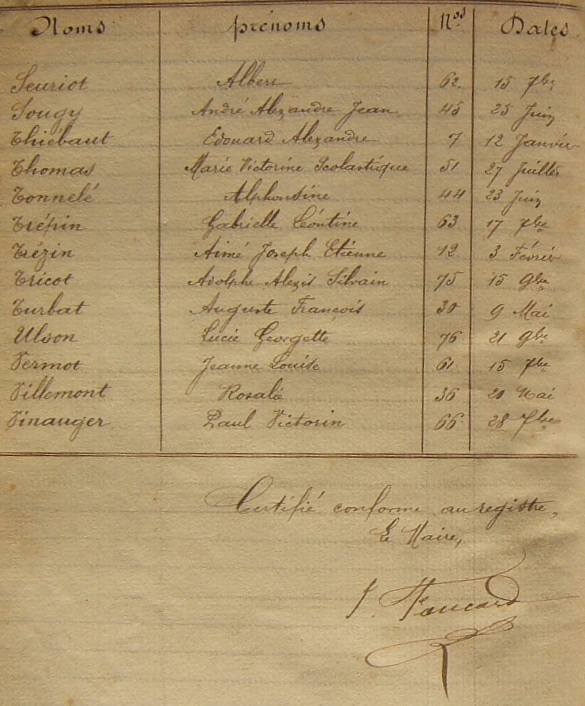 Noms Prénoms Nos Dates
Seuriot Albert 62 15 7bre
Sougy André Alexandre Jean 45 25 Juin
Thiébaut Edouard Alexandre 7 12 Janvier
Thomas Marie Victorine Scolastique 51 27 Juillet
Tonnelé Alphonsine 44 23 Juin
Trépin Gabrielle Léontine 63 17 7bre
Trézin Aimé Joseph Etienne 12 3 Février
Tricot Adolphe Alexis Silvain 75 15 9bre
Turbat Auguste François 30 9 Mai
Ulson Lucie Georgette 76 21 9bre
Vermot Jeanne Louise 61 15 7bre
Villemont Rosalie 36 20 Mai
Vinauger Paul Victorin 66 28 7bre
Certifié conforme au registre,
Le Maire,
Foucard